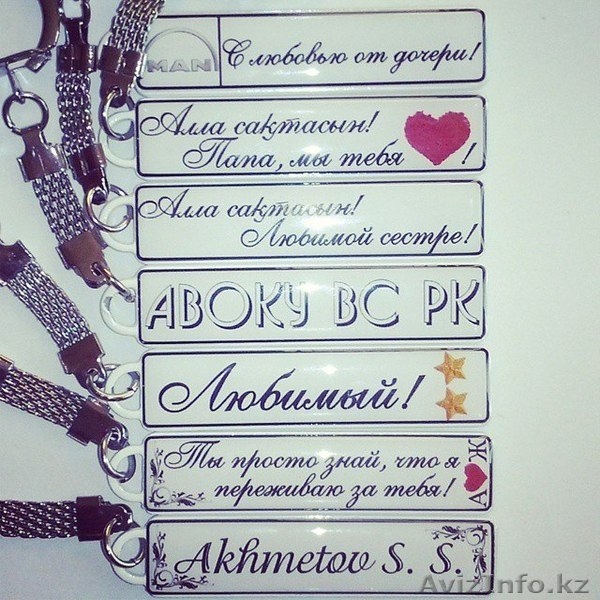 MAN
С любовью от дочери!
Алла сақтасын!
Папа, мы тебя !
Алла сақтасын!
Любимой сестре!
АВОКУ ВС РК
Любимый!
Ты просто знай, что я
переживаю за тебя!
А Ж
Akhmetov S. S.
AvizInfo.kz